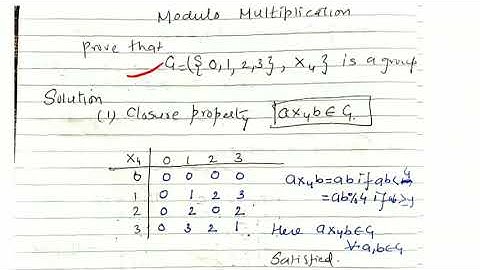 Modulo Multiplication
Prove that
G=({0,1,2,3}, ×₄} is a group
Solution
(1) Closure property a×₄b∈G.
×₄ 0 1 2 3
0 0 0 0 0
1 0 1 2 3
2 0 2 0 2
3 0 3 2 1
a×₄b=ab if ab<4
=ab%4 if ab≥4
Here a×₄b∈G
∀a,b∈G
Satisfied.